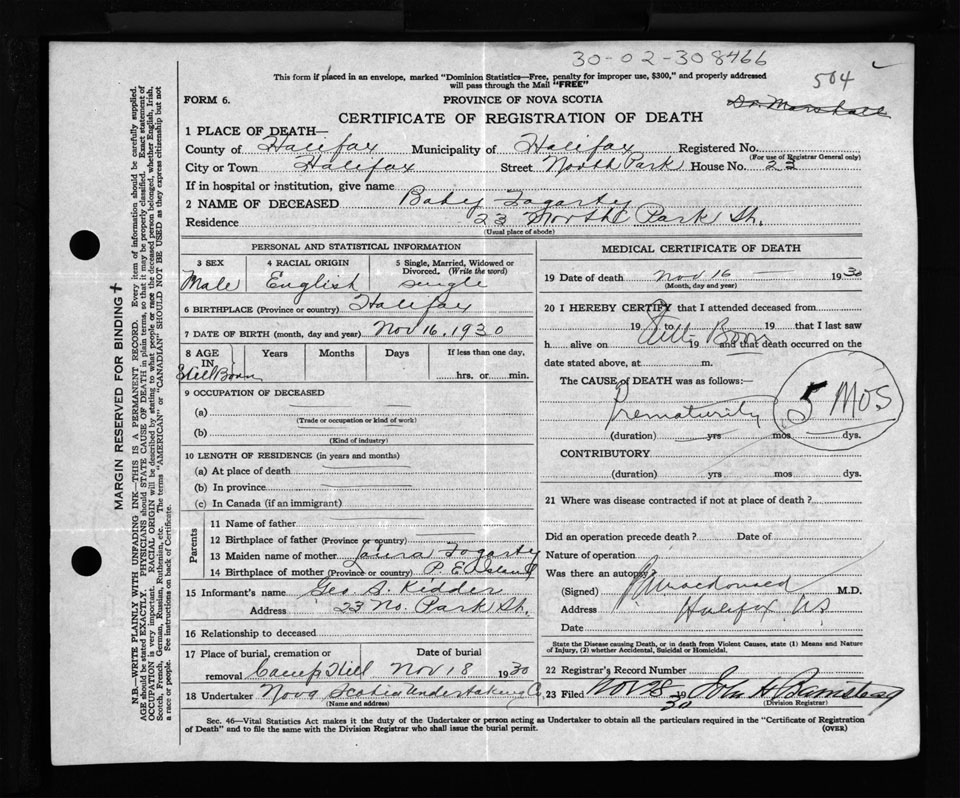 30-02-308466
This form if placed in an envelope, marked "Dominion Statistics—Free, penalty for improper use, $300," and properly addressed
will pass through the Mail "FREE"
504
FORM 6.
PROVINCE OF NOVA SCOTIA
Dr Marshall
CERTIFICATE OF REGISTRATION OF DEATH
1 PLACE OF DEATH—
County of Halifax Municipality of Halifax Registered No.
(For use of Registrar General only)
City or Town Halifax Street North Park House No. 23
If in hospital or institution, give name
2 NAME OF DECEASED Baby Fogarty
Residence 23 North Park St.
(Usual place of abode)
PERSONAL AND STATISTICAL INFORMATION
3 SEX 4 RACIAL ORIGIN 5 Single, Married, Widowed or
Divorced. (Write the word)
Male English single
6 BIRTHPLACE (Province or country) Halifax
7 DATE OF BIRTH (month, day and year) Nov 16, 1930
8 AGE Years Months Days If less than one day,
IN
Still Born hrs. or min.
9 OCCUPATION OF DECEASED
(a)
(Trade or occupation or kind of work)
(b)
(Kind of industry)
10 LENGTH OF RESIDENCE (in years and months)
(a) At place of death
(b) In province
(c) In Canada (if an immigrant)
Parents
11 Name of father
12 Birthplace of father (Province or country)
13 Maiden name of mother Laura Fogarty
14 Birthplace of mother (Province or country) P. E. Island
15 Informant's name Geo S. Kidder
Address 23 No. Park St.
16 Relationship to deceased
17 Place of burial, cremation or Date of burial
removal Camp Hill Nov 18 1930
18 Undertaker Nova Scotia Undertaking Co
(Name and address)
MEDICAL CERTIFICATE OF DEATH
19 Date of death Nov 16 1930
(Month, day and year)
20 I HEREBY CERTIFY that I attended deceased from
19 to 19 that I last saw
Still Born
h alive on 19 and that death occurred on the
date stated above, at m.
The CAUSE of DEATH was as follows:—
Prematurity
5 MOS
(duration) yrs mos dys.
CONTRIBUTORY
(duration) yrs mos dys.
21 Where was disease contracted if not at place of death?
Did an operation precede death? Date of
Nature of operation
Was there an autopsy
(Signed) Macdonald M.D.
Address Halifax NS
Date
State the Disease causing Death, or in death from Violent Causes, state (1) Means and Nature
of Injury, (2) whether Accidental, Suicidal or Homicidal.
22 Registrar's Record Number
23 Filed NOV 28 1930 John H
(Division Registrar)
Sec. 46—Vital Statistics Act makes it the duty of the Undertaker or person acting as Undertaker to obtain all the particulars required in the "Certificate of Registration
of Death" and to file the same with the Division Registrar who shall issue the burial permit. (OVER)
MARGIN RESERVED FOR BINDING
N.B.—WRITE PLAINLY WITH UNFADING INK—THIS IS A PERMANENT RECORD. Every item of information should be carefully supplied.
AGE should be stated EXACTLY. PHYSICIANS should STATE CAUSE OF DEATH in plain terms, so that it may be properly classified. Exact statement of
OCCUPATION is very important. RACIAL ORIGIN will be described by stating to what people or race the deceased person belonged, whether English, Irish,
Scotch, French, German, Russian, Ruthenian, etc. The terms "AMERICAN" or "CANADIAN" SHOULD NOT BE USED as they express citizenship but not
a race or people. See instructions on back of Certificate.